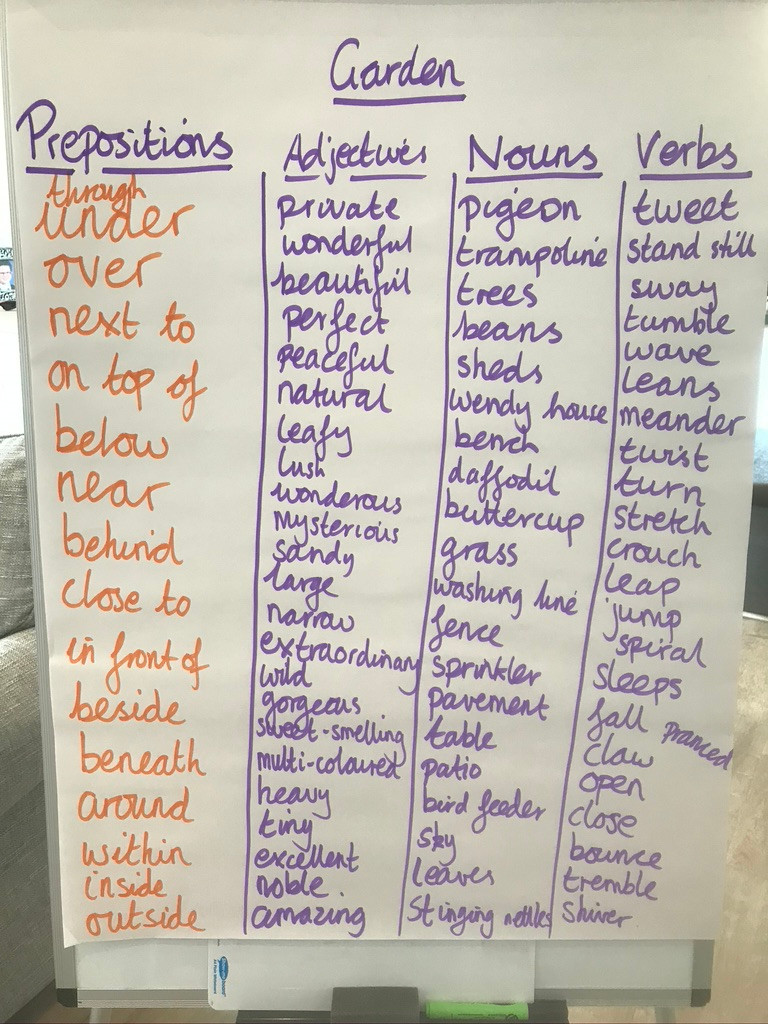 Garden
Prepositions
through
under
over
next to
on top of
below
near
behind
close to
in front of
beside
beneath
around
within
inside
outside
Adjectives
private
wonderful
beautiful
perfect
peaceful
natural
leafy
lush
wonderous
mysterious
sandy
large
narrow
extraordinary
wild
gorgeous
sweet-smelling
multi-coloured
heavy
tiny
excellent
noble.
amazing
Nouns
pigeon
trampoline
trees
beans
sheds
wendy house
bench
daffodil
buttercup
grass
washing line
fence
sprinkler
pavement
table
patio
bird feeder
sky
leaves
Stinging nettles
Verbs
tweet
stand still
sway
tumble
wave
leans
meander
twist
turn
stretch
crouch
leap
jump
spiral
sleeps
fall
pranced
claw
open
close
bounce
tremble
shiver